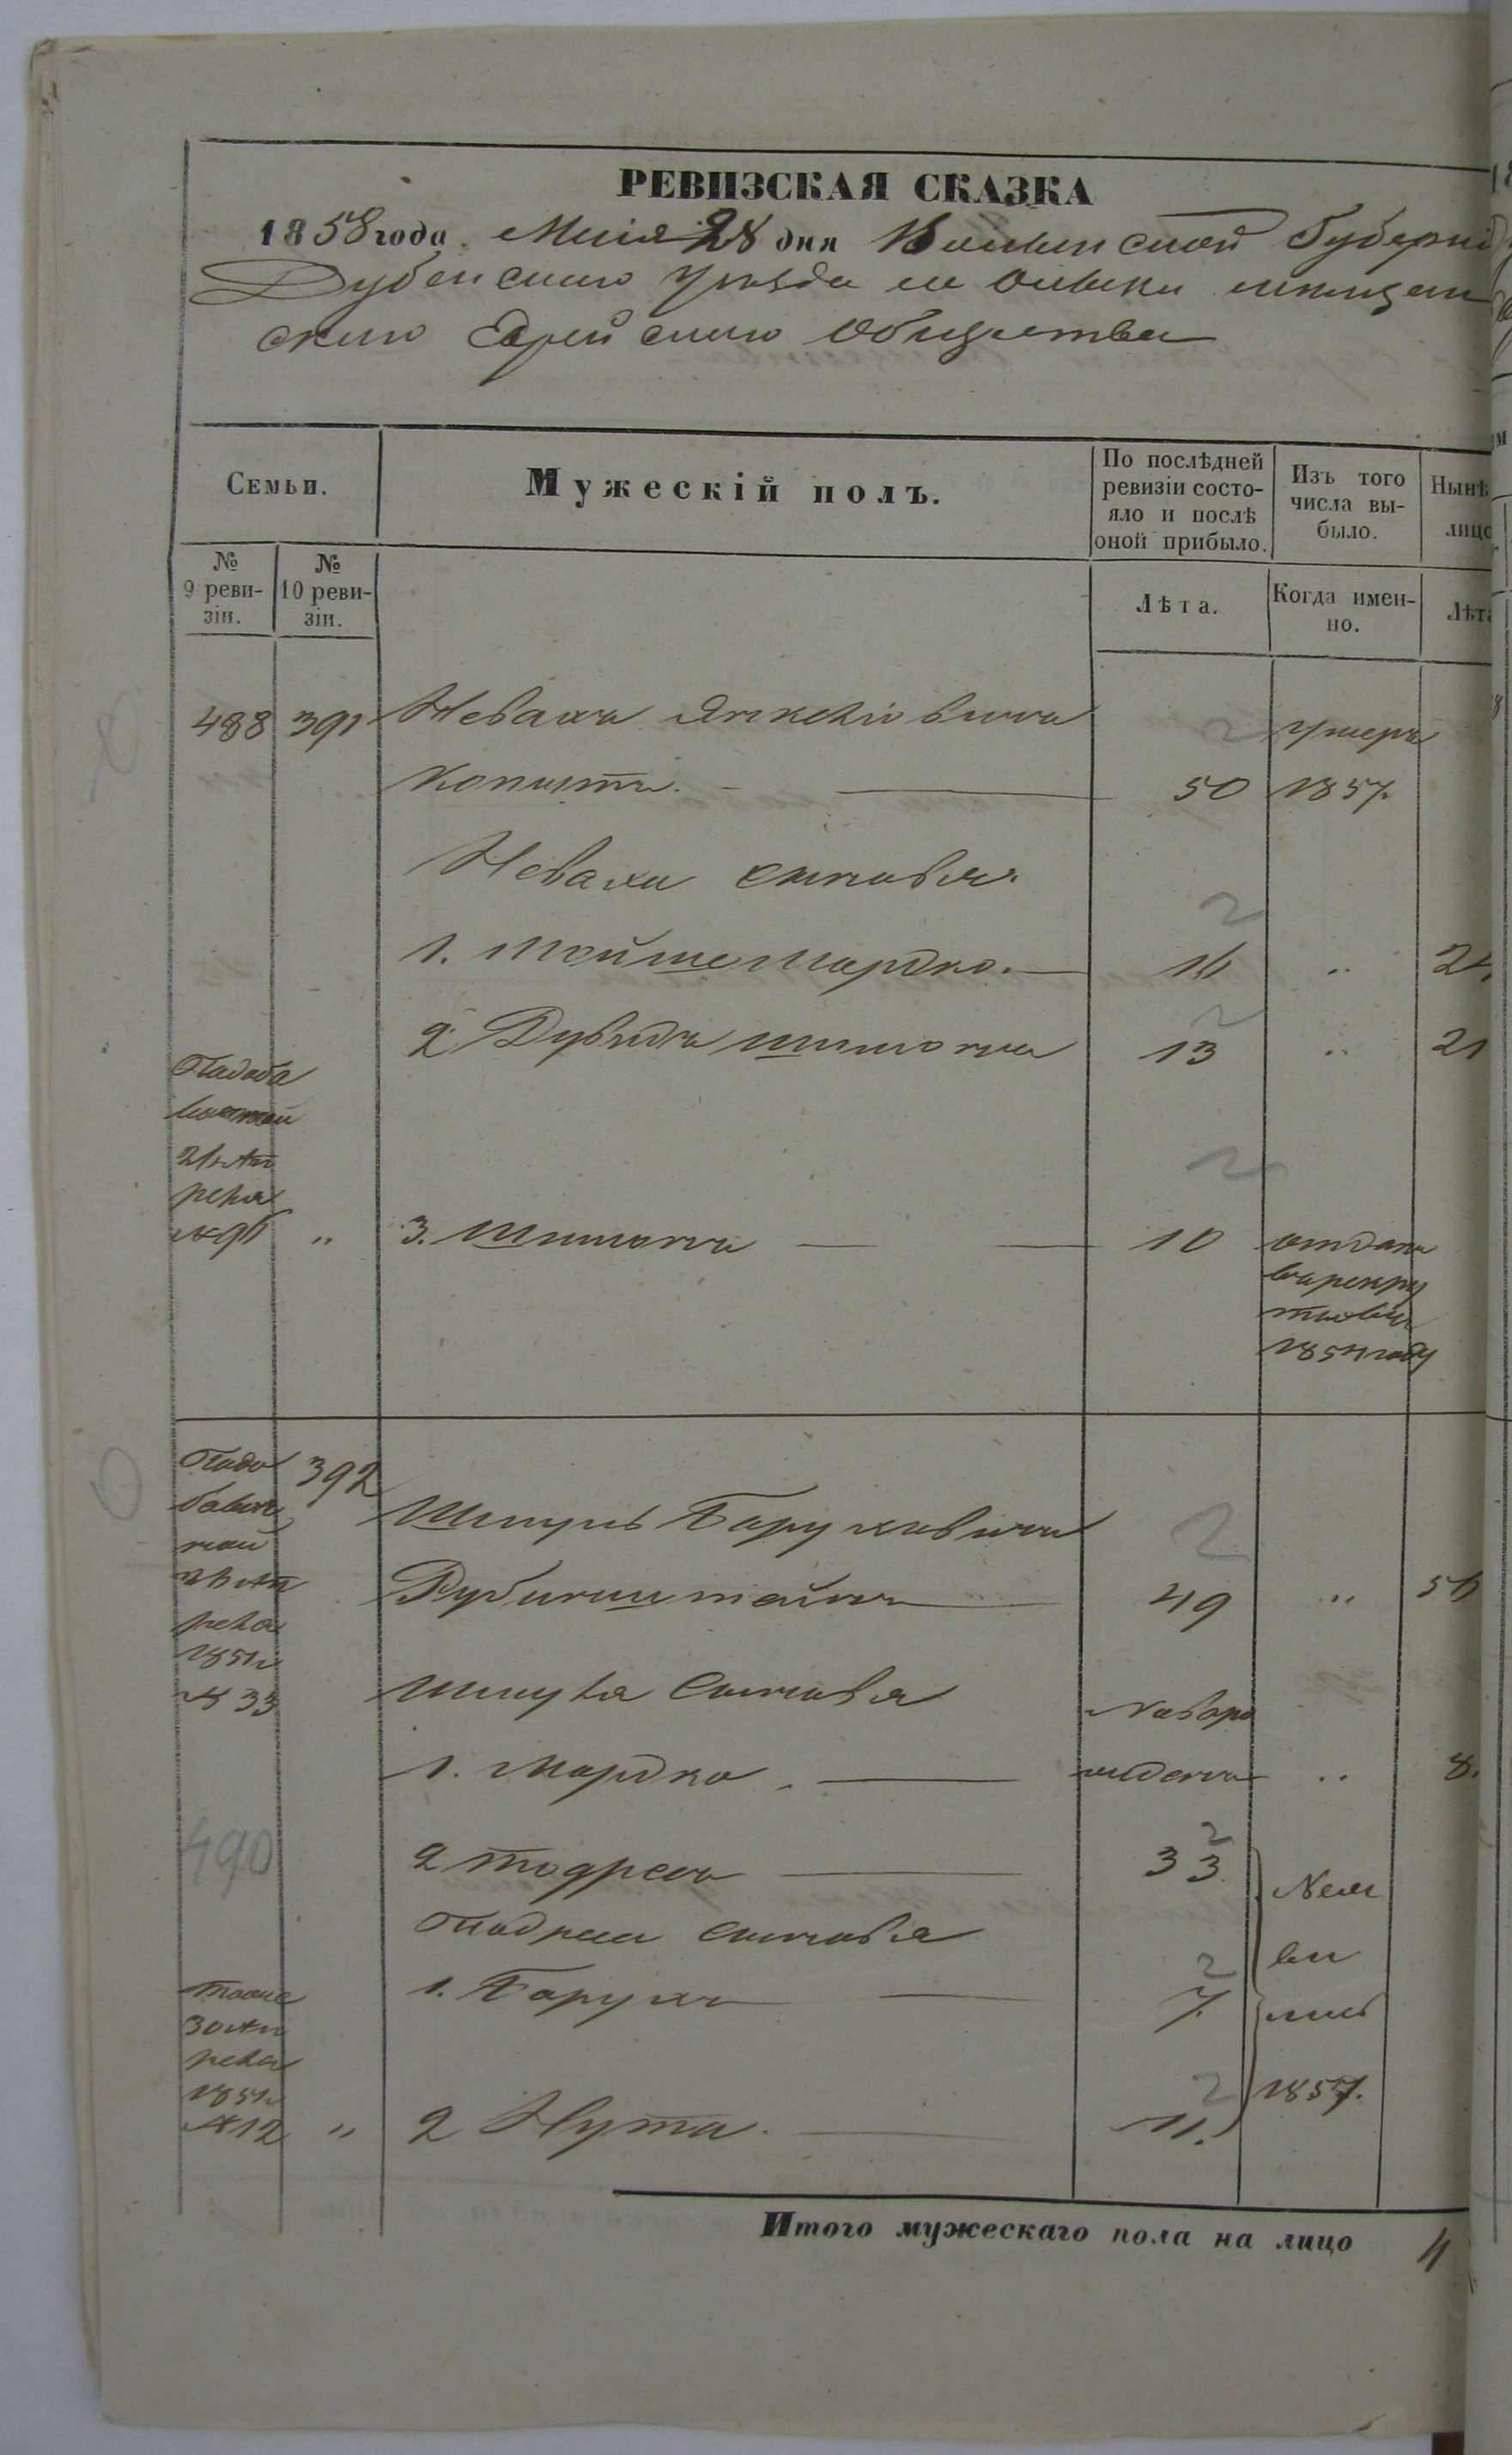 РЕВИЗСКАЯ СКАЗКА
1858 года Маія 28 дня Волынской Губерніи
Дубенскаго Уѣзда м Олыки мѣщан
скаго Еврейскаго Общества
Семьи.
Мужескій полъ.
По послѣдней
ревизіи состо-
яло и послѣ
оной прибыло.
Изъ того
числа вы-
было.
Нынѣ
лицо
№
9 реви-
зіи.
№
10 реви-
зіи.
Лѣта.
Когда имен-
но.
Лѣта
488 391 Невахъ Янкелiовичъ умеръ
Копытъ. 50 1857.
Неваха сыновья
1. Мойше Мордко. 16 " 24
2. Дувидъ Шимонъ 13 " 21
По доба
вочной
21 Ап
реля
№ 96 " 3. Шимонъ 10 отданъ
въ рекру
ты въ
1854 году
По до 392
бавоч
ной
Ап
реля
1851
№ 33
Шмуль Боруховичъ
Рубинштейнъ 49 " 56
Шмуля Сыновья Новоро
1. Мордко. жденъ " 8.
490
2 Тодресъ 33
Тодреса сыновья
1. Борухъ 7.
Тоже
30 Ап
реля
1851
№ 12 " 2 Нута. 11.
1857.
Итого мужескаго пола на лицо 4